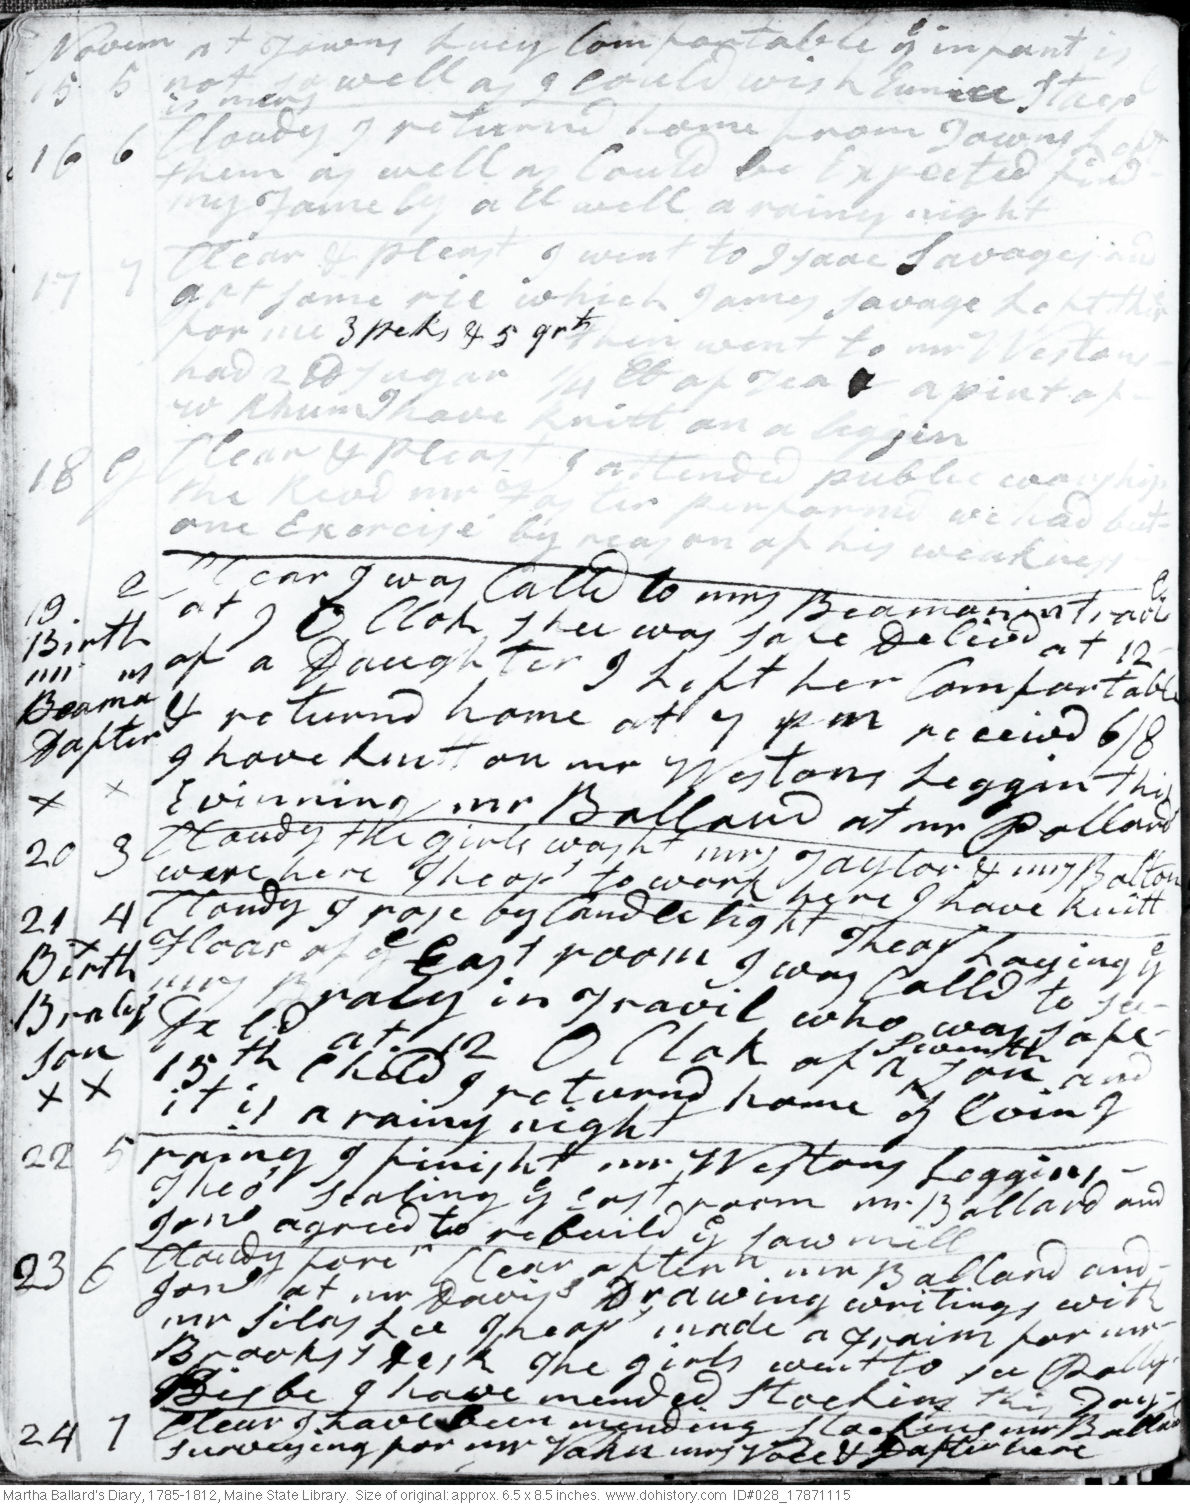 Novem at Towns Lucy Comfortable ye infant is
15 5 not so well as I Could wish Eunice Stacy
is
16 6 Cloudy I returnd home from Towns Left
them as well as Could be Expected find
my Famely all well a rainy night
17 7 Clear & Pleast I went to Isaac Savages and
got some rie which James Savage Left their
for me 3 peks & 5 qrts then went to mr Westons
had 2 lb Sugar 1/4 lb of Tea & a pint of
w Rhum I have knitt on a leggin
18 g Clear & Pleast I attended public worship
the Revd mr Foster performd we had but
one Exercise by reason of his weakness
19 2 Clear I was Calld to mrs Beamans in ye
Birth at O Clok shee was safe Delivd at 12
of a Daughter I left her Comfortable
Beama & returnd home at 7 pm receivd 6/8
Dafter I have knitt on mr Westons Leggin this
x x Evinning mr Ballard at mr Pollards
20 3 Cloudy the girls washt mrs Taylor & mrs Bolton
were here Theops to work here I have knitt
21 4 Cloudy I rose by Candle light Theos Laying ye
Birth x Floar of ye East room I was Calld to see
Braley mrs Braly in Travil who was safe
son at 12 O Clok of a Seventh Son and
x x 15th Child I returnd home Evng
it is a rainy night
22 5 rainy I finisht mr Westons Leggins
Theos sealing ye east room mr Ballard and
Jona agreed to rebuild ye saw mill
23 6 Cloudy foren Clear aftern mr Ballard and
Jona at mr Davis's Drawing writings with
mr Silas Lee Theops made a Fraim for mr
Brooks's Desk The girls went to see Polly
Bisbe I have mended Stockins this Day
24 7 Clear I have been mending stockins mr Ballard
surveying for mr Vahn mrs Vose & Dafter here
Martha Ballard's Diary, 1785-1812, Maine State Library. Size of original: approx. 6.5 x 8.5 inches. www.dohistory.com ID#028_17871115